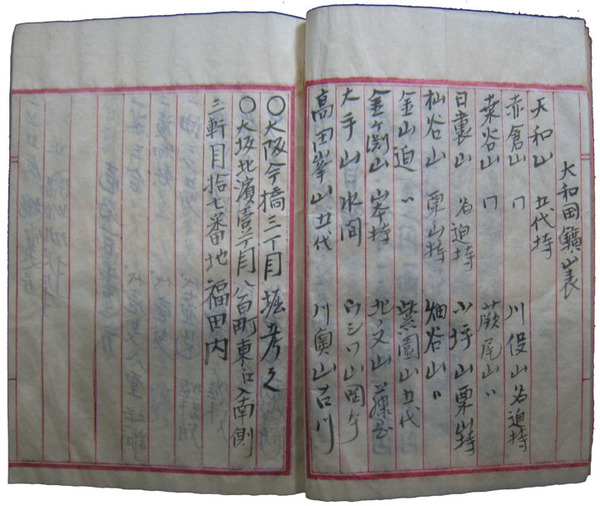 大和田鑛山表
大和山 五代持 川役山 名迫持
赤倉山 〃 蕨尾山 〃
桒谷山 〃 小坪山 栗山持
日裏山 名迫持 畑谷山 〃
杣谷山 栗山持 紫園山 五代
金山迫 〃 北ノ又山
金ヶ渕山 山本持 ウシロ山 岡本
大手山 水間 川奥山 古川
高田峯山 五代
〇大阪今橋三丁目 堀孝之
〇大坂北濱壹丁目八百町東へ入南側
三軒目拾七番地 福田内